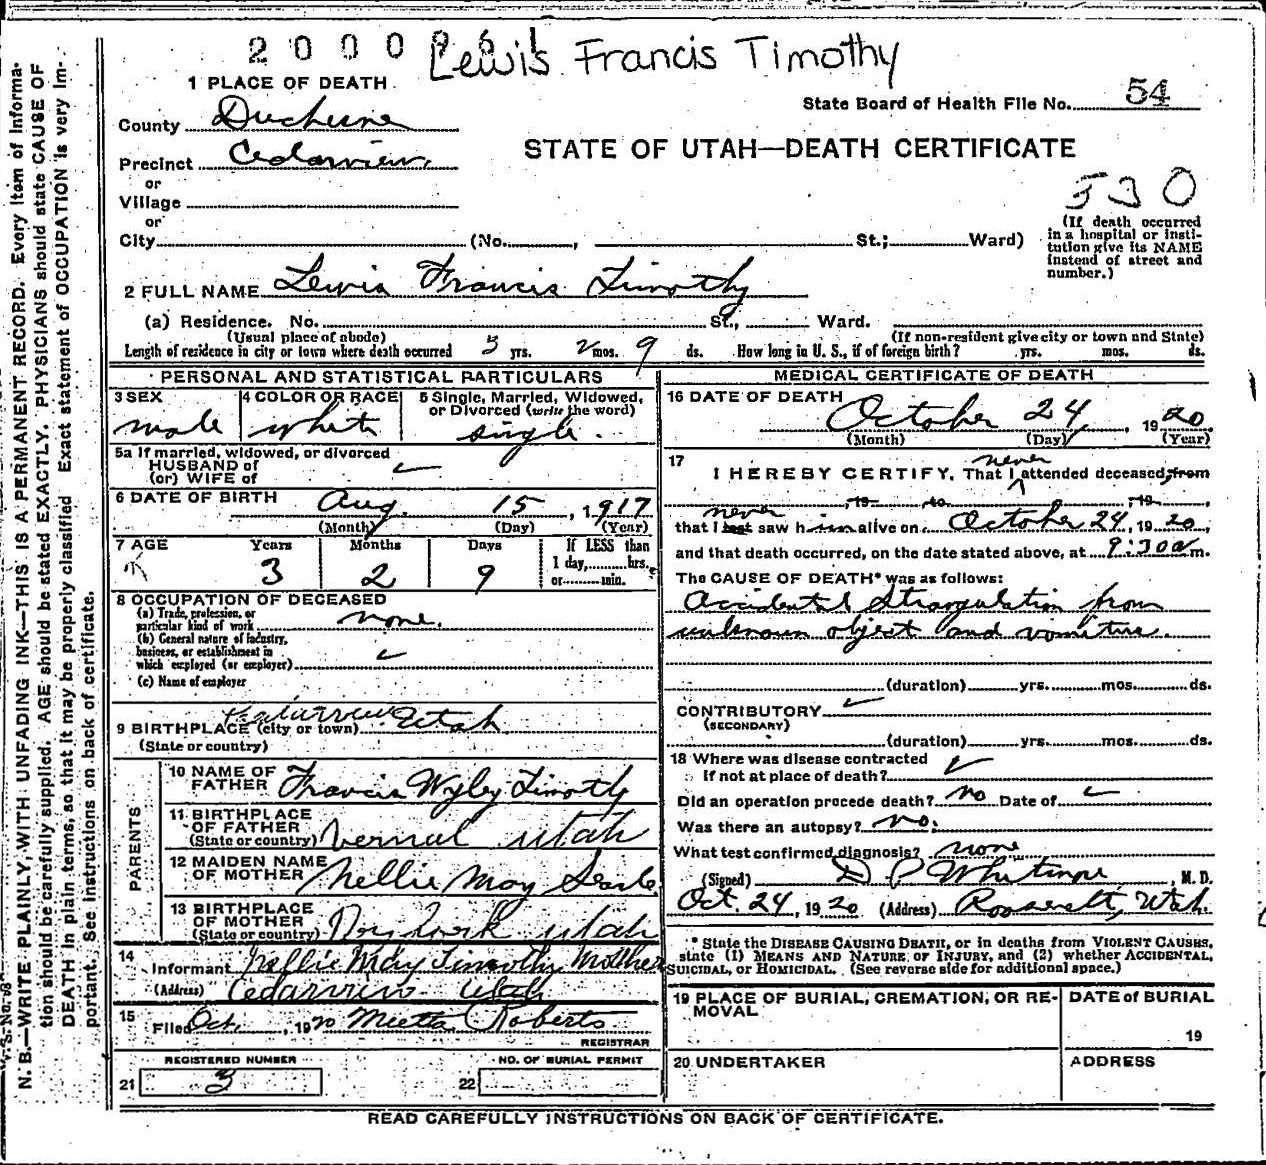 2 0 0 0
Lewis Francis Timothy
1 PLACE OF DEATH
State Board of Health File No. 54
County Duchesne
STATE OF UTAH—DEATH CERTIFICATE
Precinct Cedarview
or
Village
530
or
City (No. , St.; Ward)
(If death occurred
in a hospital or insti-
tution give its NAME
instead of street and
number.)
2 FULL NAME Lewis Francis Timothy
(a) Residence. No. St., Ward.
(Usual place of abode) (If non-resident give city or town and State)
Length of residence in city or town where death occurred 3 yrs. 2 mos. 9 ds. How long in U. S., if of foreign birth? yrs. mos. ds.
PERSONAL AND STATISTICAL PARTICULARS
3 SEX
male
4 COLOR OR RACE
white
5 Single, Married, Widowed,
or Divorced (write the word)
single.
5a If married, widowed, or divorced
HUSBAND of
(or) WIFE of
6 DATE OF BIRTH Aug. 15, 1917
(Month) (Day) (Year)
7 AGE Years Months Days
3 2 9
If LESS than
1 day, hrs.
or min.
8 OCCUPATION OF DECEASED
(a) Trade, profession, or
particular kind of work none.
(b) General nature of industry,
business, or establishment in
which employed (or employer)
(c) Name of employer
9 BIRTHPLACE (city or town) Utah
(State or country)
PARENTS
10 NAME OF
FATHER Francis Wyley Timothy
11 BIRTHPLACE
OF FATHER
(State or country) Vernal Utah
12 MAIDEN NAME
OF MOTHER Nellie May Searle
13 BIRTHPLACE
OF MOTHER
(State or country) Utah
14
Informant Nellie May Timothy Mother
(Address) Cedarview Utah
15
Filed Oct. , 1920 Meetta Roberts
REGISTRAR
REGISTERED NUMBER
21 3
NO. OF BURIAL PERMIT
22
MEDICAL CERTIFICATE OF DEATH
16 DATE OF DEATH
October 24, 1920
(Month) (Day) (Year)
17
never
I HEREBY CERTIFY, That I attended deceased, from
, 19 to , 19 ,
never
that I last saw him alive on October 24, 1920,
and that death occurred, on the date stated above, at 9:30 a m.
The CAUSE OF DEATH* was as follows:
Accidental Strangulation from
unknown object and vomitus.
(duration) yrs. mos. ds.
CONTRIBUTORY
(SECONDARY)
(duration) yrs. mos. ds.
18 Where was disease contracted
If not at place of death?
Did an operation precede death? No Date of
Was there an autopsy? no.
What test confirmed diagnosis? none
(Signed) D P Whitmore, M. D.
Oct. 24, 1920 (Address) Roosevelt, Utah.
* State the DISEASE CAUSING DEATH, or in deaths from VIOLENT CAUSES,
state (1) MEANS AND NATURE OF INJURY, and (2) whether ACCIDENTAL,
SUICIDAL, or HOMICIDAL. (See reverse side for additional space.)
19 PLACE OF BURIAL, CREMATION, OR RE-
MOVAL
DATE of BURIAL
19
20 UNDERTAKER
ADDRESS
READ CAREFULLY INSTRUCTIONS ON BACK OF CERTIFICATE.
N. B.—WRITE PLAINLY, WITH UNFADING INK—THIS IS A PERMANENT RECORD. Every item of informa-
tion should be carefully supplied. AGE should be stated EXACTLY. PHYSICIANS should state CAUSE OF
DEATH in plain terms, so that it may be properly classified. Exact statement of OCCUPATION is very im-
portant. See instructions on back of certificate.